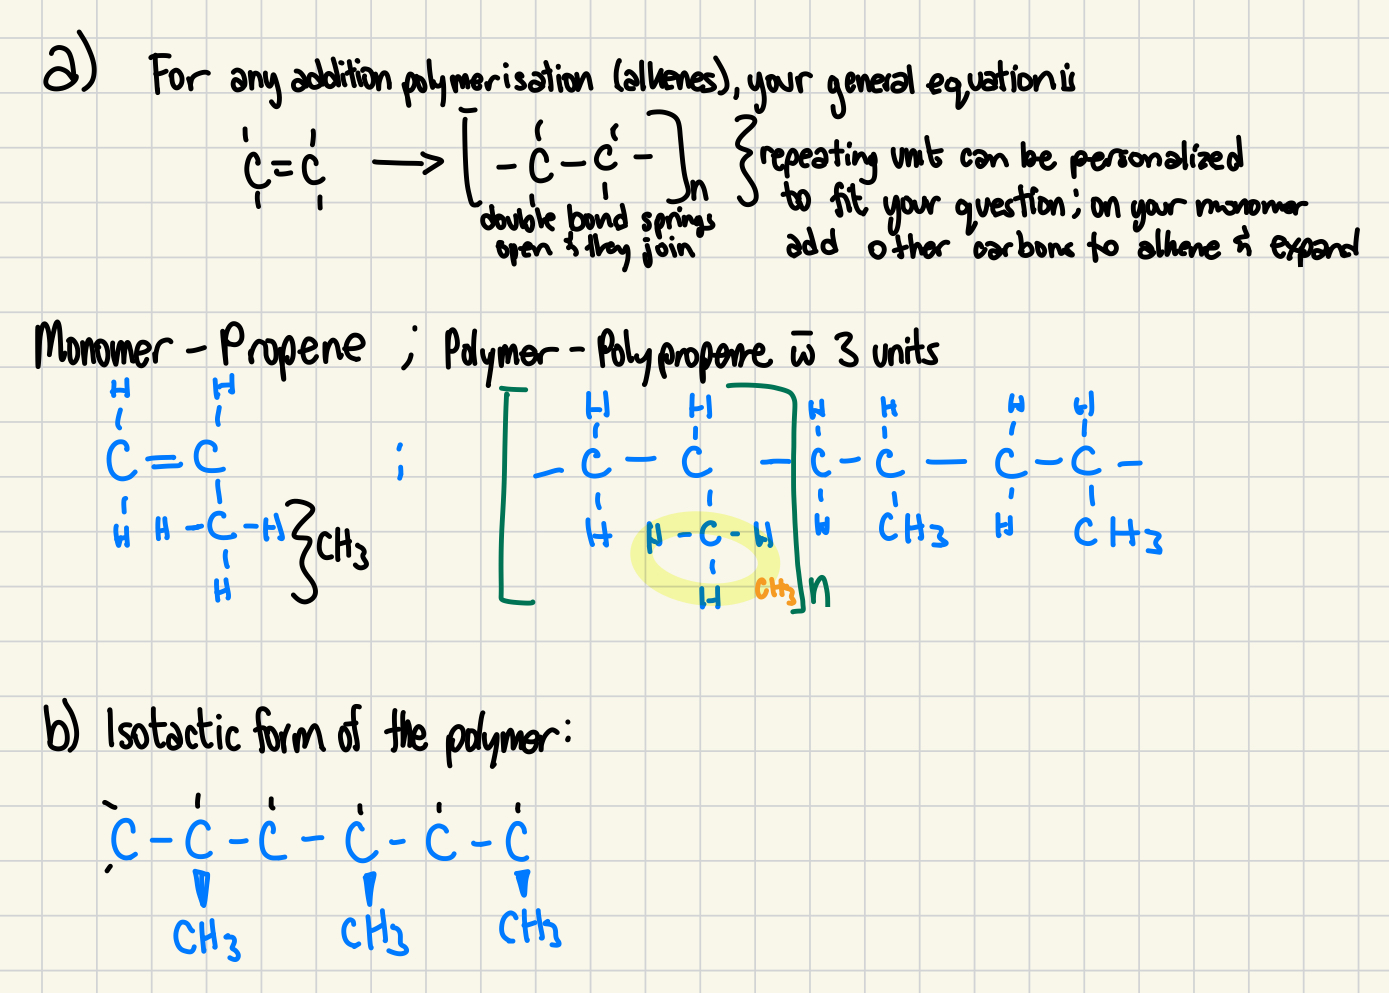 a) For any addition polymerisation (alkenes), your general equation is
C=C → [-C-C-]n } repeating unit can be personalized
double bond springs to fit your question; on your monomer
open & they join add other carbons to alkene & expand
Monomer - Propene ; Polymer - Polypropene w̄ 3 units
H H H H H H H H
C = C ; [ - C - C - ] C - C - C - C -
H H - C - H } CH3 H H - C - H H CH3 H CH3
H H CH3 n
b) Isotactic form of the polymer:
C - C - C - C - C - C
CH3 CH3 CH3